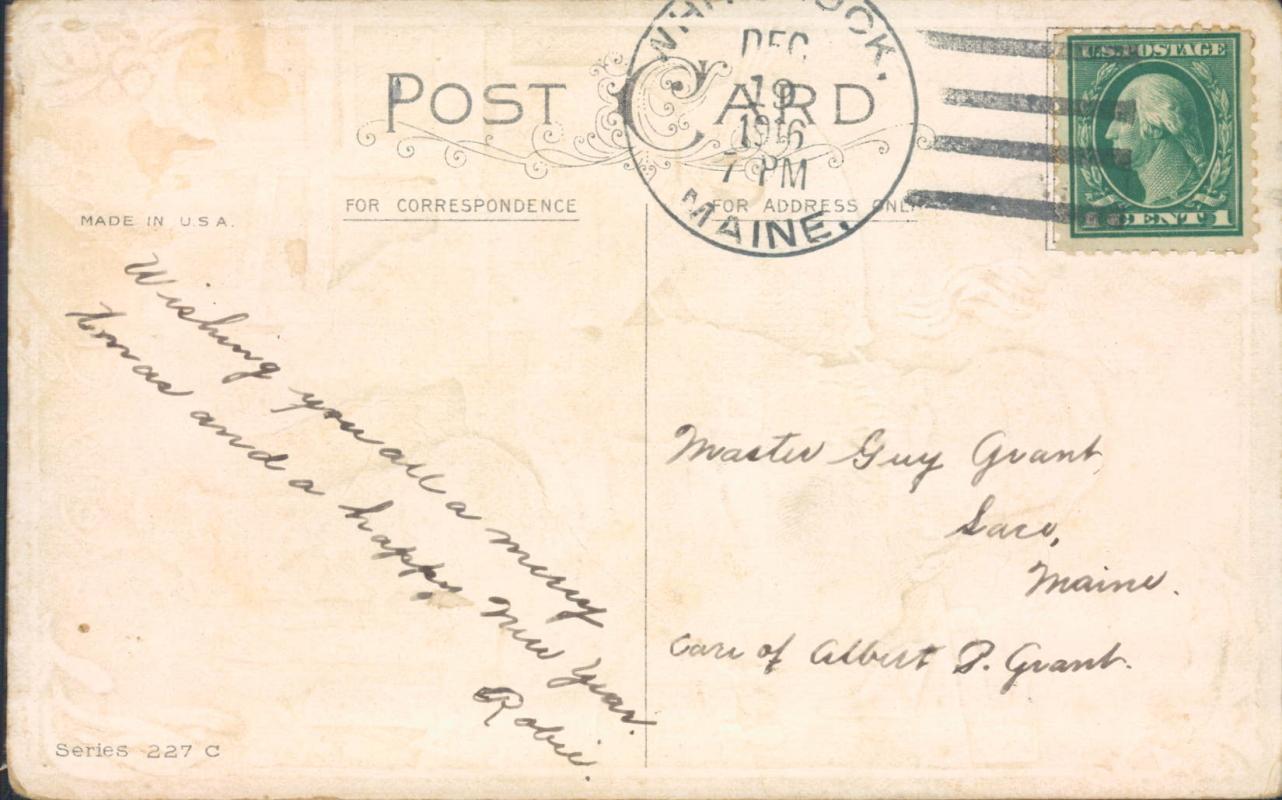 POST CARD
DEC
19
1916
7 PM
MAINE.
U.S. POSTAGE
1 CENT 1
MADE IN U.S.A.
FOR CORRESPONDENCE
FOR ADDRESS ONLY
Wishing you all a merry
Xmas and a happy New Year.
Robie.
Master Guy Grant
Saco,
Maine.
Care of Albert P. Grant.
Series 227 C